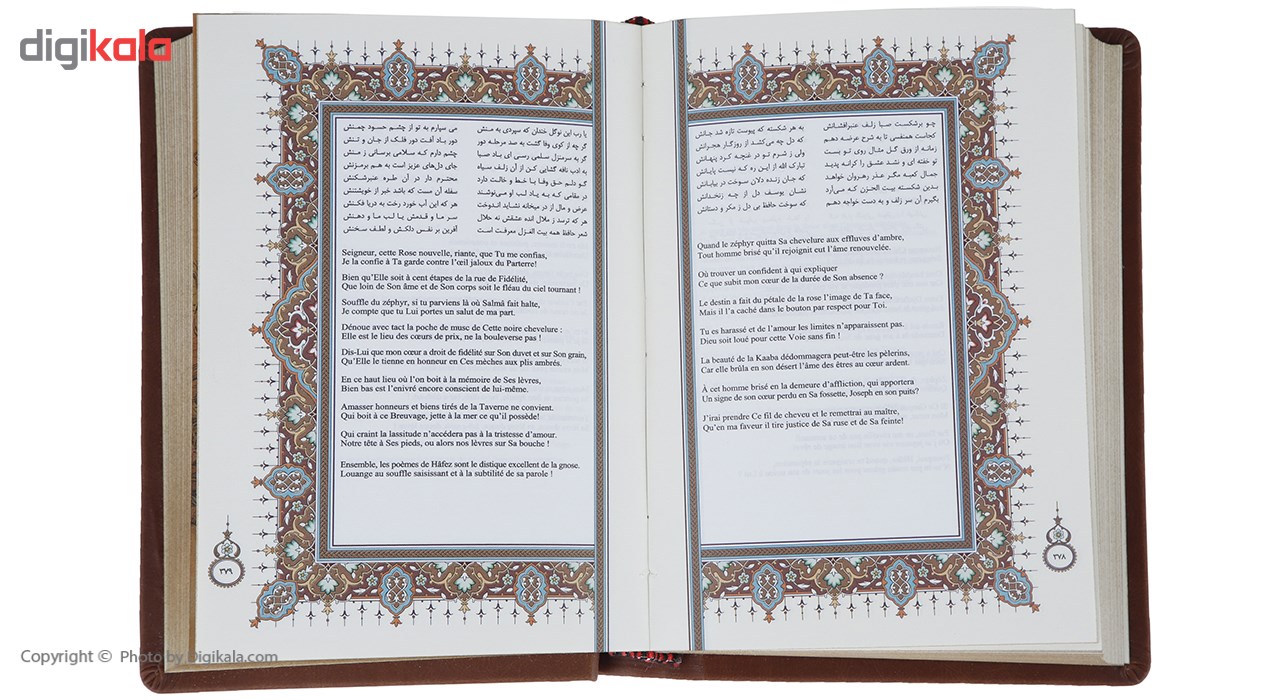 digikala
چو برشکست صبا زلف عنبرافشانش
به هر شکسته که پیوست تازه شد جانش
کجاست همنفسی تا به شرح عرضه دهم
که دل چه می‌کشد از روزگار هجرانش
زمانه از ورق گل مثال روی تو بست
ولی ز شرم تو در غنچه کرد پنهانش
تو خفته ای و نشد عشق را کرانه پدید
تبارک الله از این ره که نیست پایانش
جمال کعبه مگر عذر رهروان خواهد
که جان زنده دلان سوخت در بیابانش
بدین شکسته بیت الحزن که می‌آرد
نشان یوسف دل از چه زنخدانش
بگیرم آن سر زلف و به دست خواجه دهم
که سوخت حافظ بی دل ز مکر و دستانش
Quand le zéphyr quitta Sa chevelure aux effluves d’ambre,
Tout homme brisé qu’il rejoignit eut l’âme renouvelée.
Où trouver un confident à qui expliquer
Ce que subit mon cœur de la durée de Son absence ?
Le destin a fait du pétale de la rose l’image de Ta face,
Mais il l’a caché dans le bouton par respect pour Toi.
Tu es harassé et de l’amour les limites n’apparaissent pas.
Dieu soit loué pour cette Voie sans fin !
La beauté de la Kaaba dédommagera peut-être les pèlerins,
Car elle brûla en son désert l’âme des êtres au cœur ardent.
À cet homme brisé en la demeure d’affliction, qui apportera
Un signe de son cœur perdu en Sa fossette, Joseph en son puits?
J’irai prendre Ce fil de cheveu et le remettrai au maître,
Qu’en ma faveur il tire justice de Sa ruse et de Sa feinte!
۲۷۸
یا رب این نوگل خندان که سپردی به منش
می سپارم به تو از چشم حسود چمنش
گر چه از کوی وفا گشت به صد مرحله دور
دور باد آفت دور فلک از جان و تنش
گر به سرمنزل سلمی رسی ای باد صبا
چشم دارم که سلامی برسانی ز منش
به ادب نافه گشایی کن از آن زلف سیاه
جای دل‌های عزیز است به هم برمزنش
گو دلم حق وفا با خط و خالت دارد
محترم دار در آن طره عنبرشکنش
در مقامی که به یاد لب او می‌نوشند
سفله آن مست که باشد خبر از خویشتنش
عرض و مال از در میخانه نشاید اندوخت
هر که این آب خورد رخت به دریا فکنش
هر که ترسد ز ملال انده عشقش نه حلال
سر ما و قدمش یا لب ما و دهنش
شعر حافظ همه بیت الغزل معرفت است
آفرین بر نفس دلکش و لطف سخنش
Seigneur, cette Rose nouvelle, riante, que Tu me confias,
Je la confie à Ta garde contre l’œil jaloux du Parterre!
Bien qu’Elle soit à cent étapes de la rue de Fidélité,
Que loin de Son âme et de Son corps soit le fléau du ciel tournant !
Souffle du zéphyr, si tu parviens là où Salmâ fait halte,
Je compte que tu Lui portes un salut de ma part.
Dénoue avec tact la poche de musc de Cette noire chevelure :
Elle est le lieu des cœurs de prix, ne la bouleverse pas !
Dis-Lui que mon cœur a droit de fidélité sur Son duvet et sur Son grain,
Qu’Elle le tienne en honneur en Ces mèches aux plis ambrés.
En ce haut lieu où l’on boit à la mémoire de Ses lèvres,
Bien bas est l’enivré encore conscient de lui-même.
Amasser honneurs et biens tirés de la Taverne ne convient.
Qui boit à ce Breuvage, jette à la mer ce qu’il possède!
Qui craint la lassitude n’accédera pas à la tristesse d’amour.
Notre tête à Ses pieds, ou alors nos lèvres sur Sa bouche !
Ensemble, les poèmes de Hâfez sont le distique excellent de la gnose.
Louange au souffle saisissant et à la subtilité de sa parole !
۲۷۹
Copyright © Photo by Digikala.com